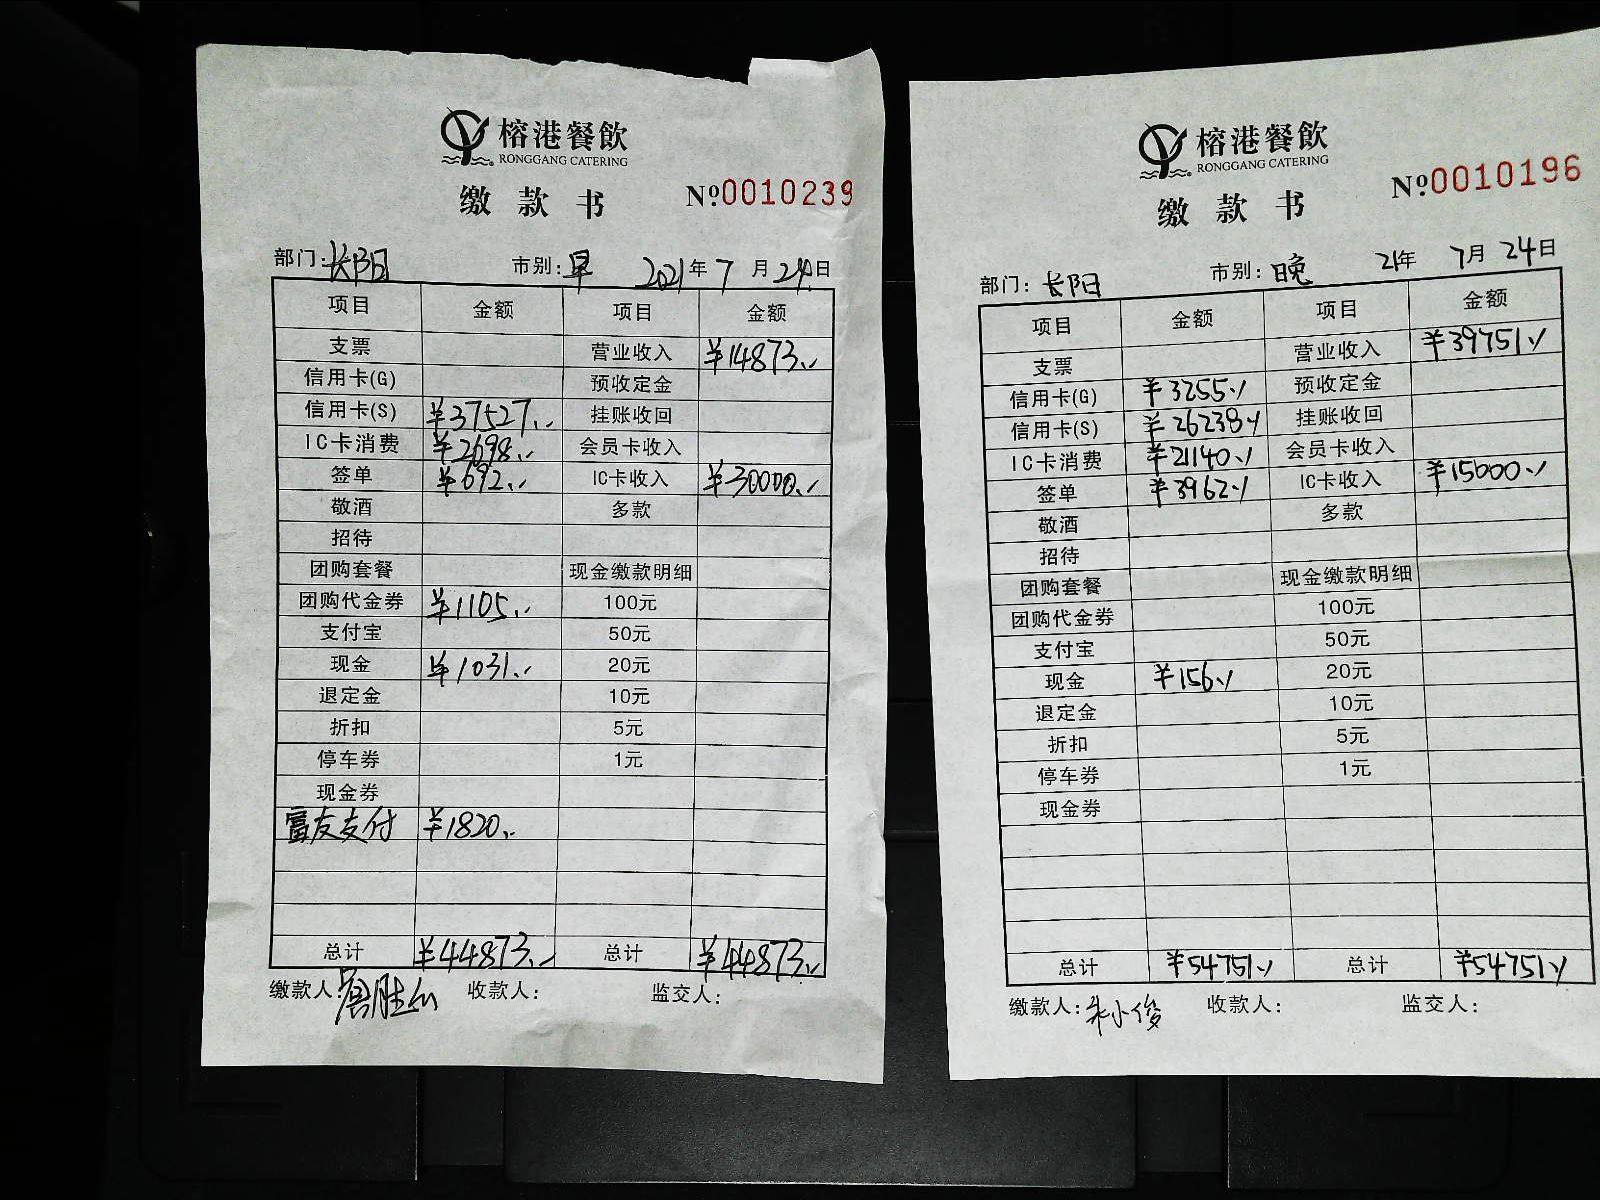 榕港餐飲
RONGGANG CATERING
缴款书 №0010239
部门:长阳 市别:早 2021年7月24日
项目 金额 项目 金额
支票 营业收入 ¥14873.-
信用卡(G) 预收定金
信用卡(S) ¥37527.- 挂账收回
IC卡消费 ¥2698.- 会员卡收入
签单 ¥692.- IC卡收入 ¥30000.-
敬酒 多款
招待
团购套餐 现金缴款明细
团购代金券 ¥1105.- 100元
支付宝 50元
现金 ¥1031.- 20元
退定金 10元
折扣 5元
停车券 1元
现金券
富友支付 ¥1820.-
总计 ¥44873.- 总计 ¥44873.-
缴款人: 收款人: 监交人:
榕港餐飲
RONGGANG CATERING
缴款书 №0010196
部门:长阳 市别:晚 21年7月24日
项目 金额 项目 金额
支票 营业收入 ¥39751.-
信用卡(G) ¥3255.- 预收定金
信用卡(S) ¥26238.- 挂账收回
IC卡消费 ¥21140.- 会员卡收入
签单 ¥3962.- IC卡收入 ¥15000.-
敬酒 多款
招待
团购套餐 现金缴款明细
团购代金券 100元
支付宝 50元
现金 ¥156.- 20元
退定金 10元
折扣 5元
停车券 1元
现金券
总计 ¥54751.- 总计 ¥54751.-
缴款人:朱小俊 收款人: 监交人: